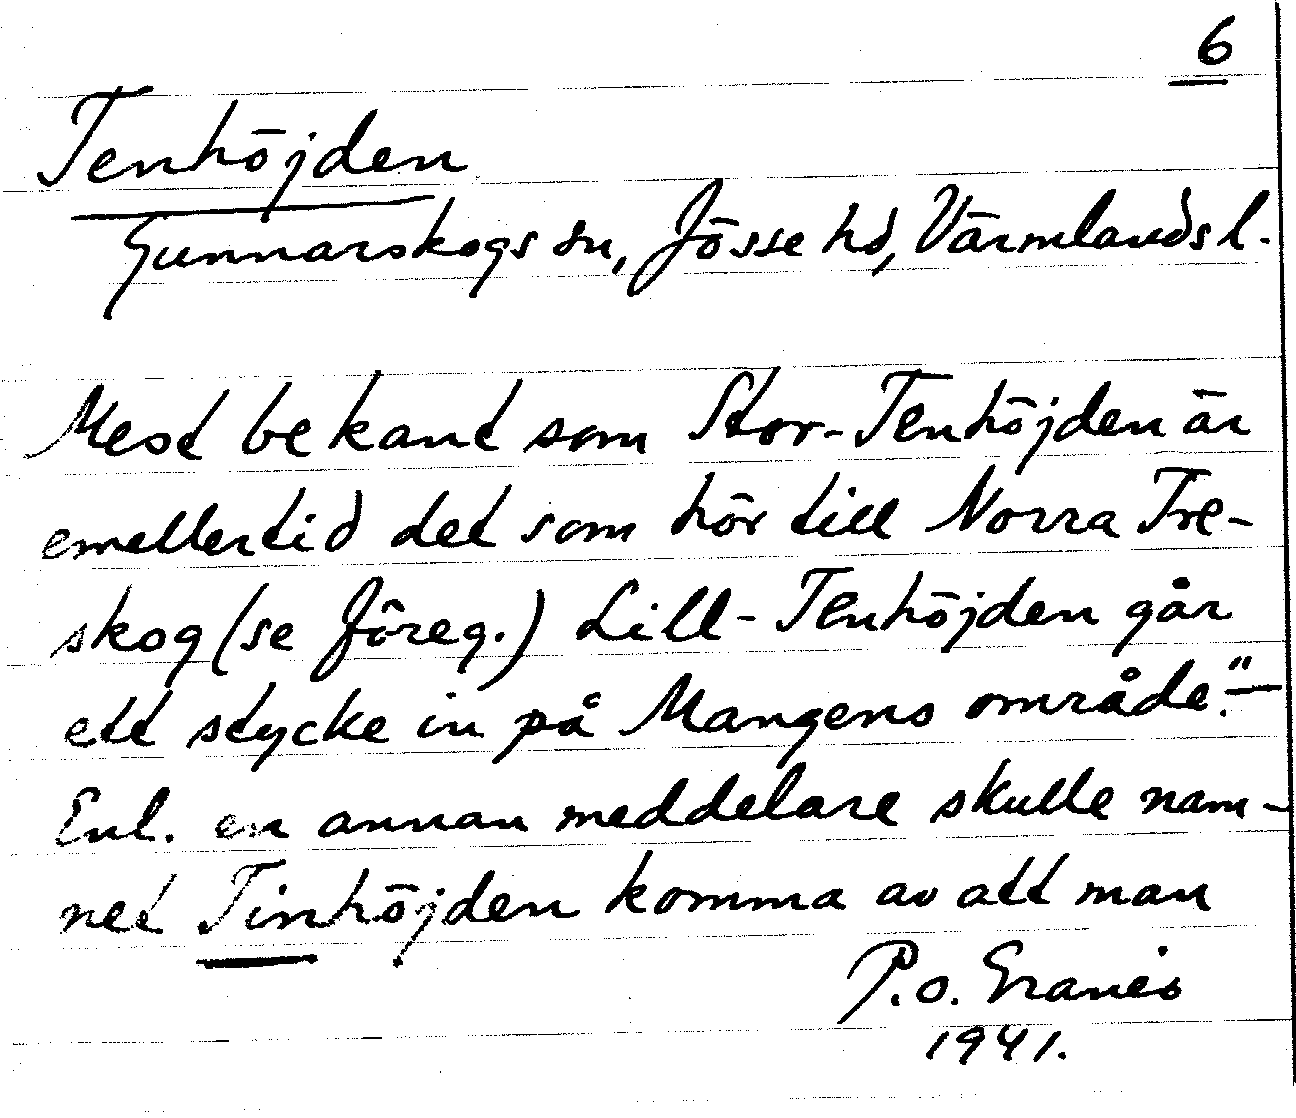 6
Tenhöjden
Gunnarskogs sn, Jösse hd, Värmlands l.
Mest bekant som Stor-Tenhöjden är
emellertid det som hör till Norra Tre-
skog (se föreg.) Lill-Tenhöjden går
ett stycke in på Mangens område." —
Enl. en annan meddelare skulle nam-
net Tinhöjden komma av att man
P.O. Eranés
1941.